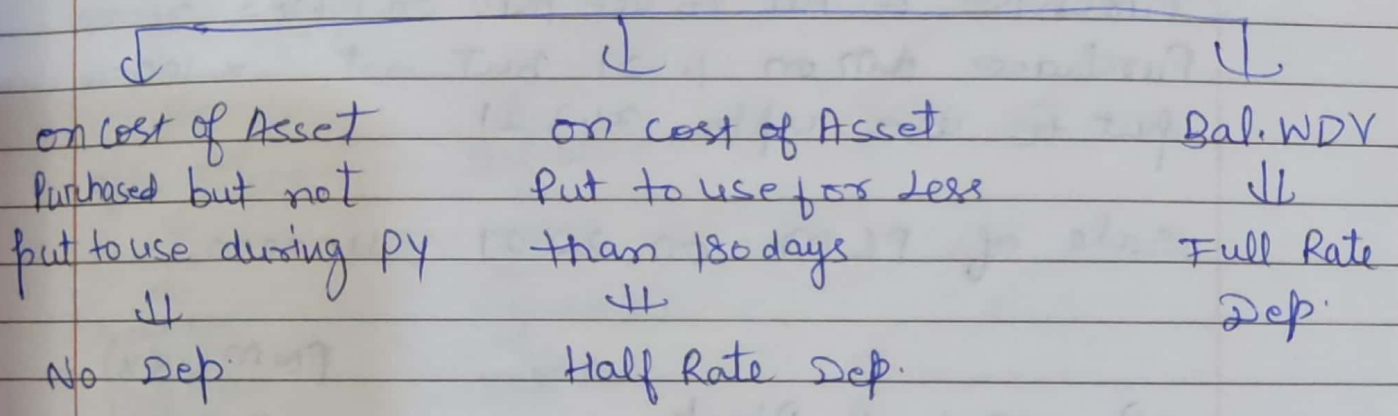 on cost of Asset
Purchased but not
put to use during PY
No Dep.
on cost of Asset
Put to use for Less
than 180 days
Half Rate Dep.
Bal. WDV
Full Rate
Dep.